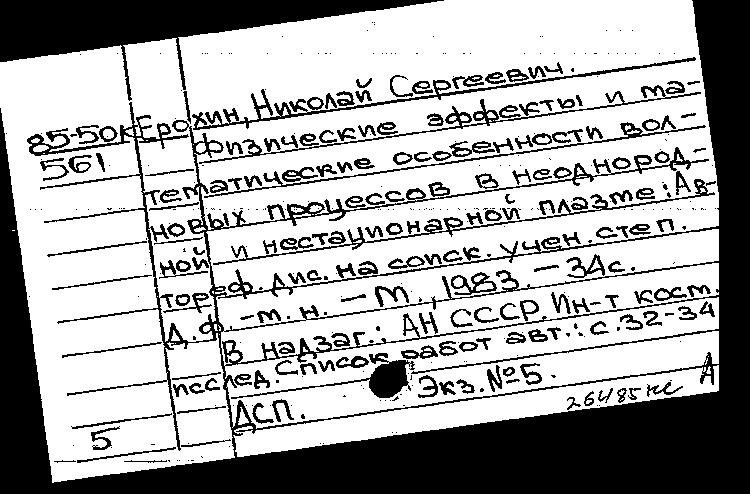 85-50к Ерохин, Николай Сергеевич.
561 Физические эффекты и ма-
тематические особенности вол-
новых процессов в неоднород-
ной и нестационарной плазме: Ав-
тореф. дис. на соиск. учен. степ.
д. ф.-м. н. — М., 1983. — 34с.
В надзаг.: АН СССР. Ин-т косм.
исслед. Список работ авт.: с. 32-34
ДСП. Экз. №5.
5 А